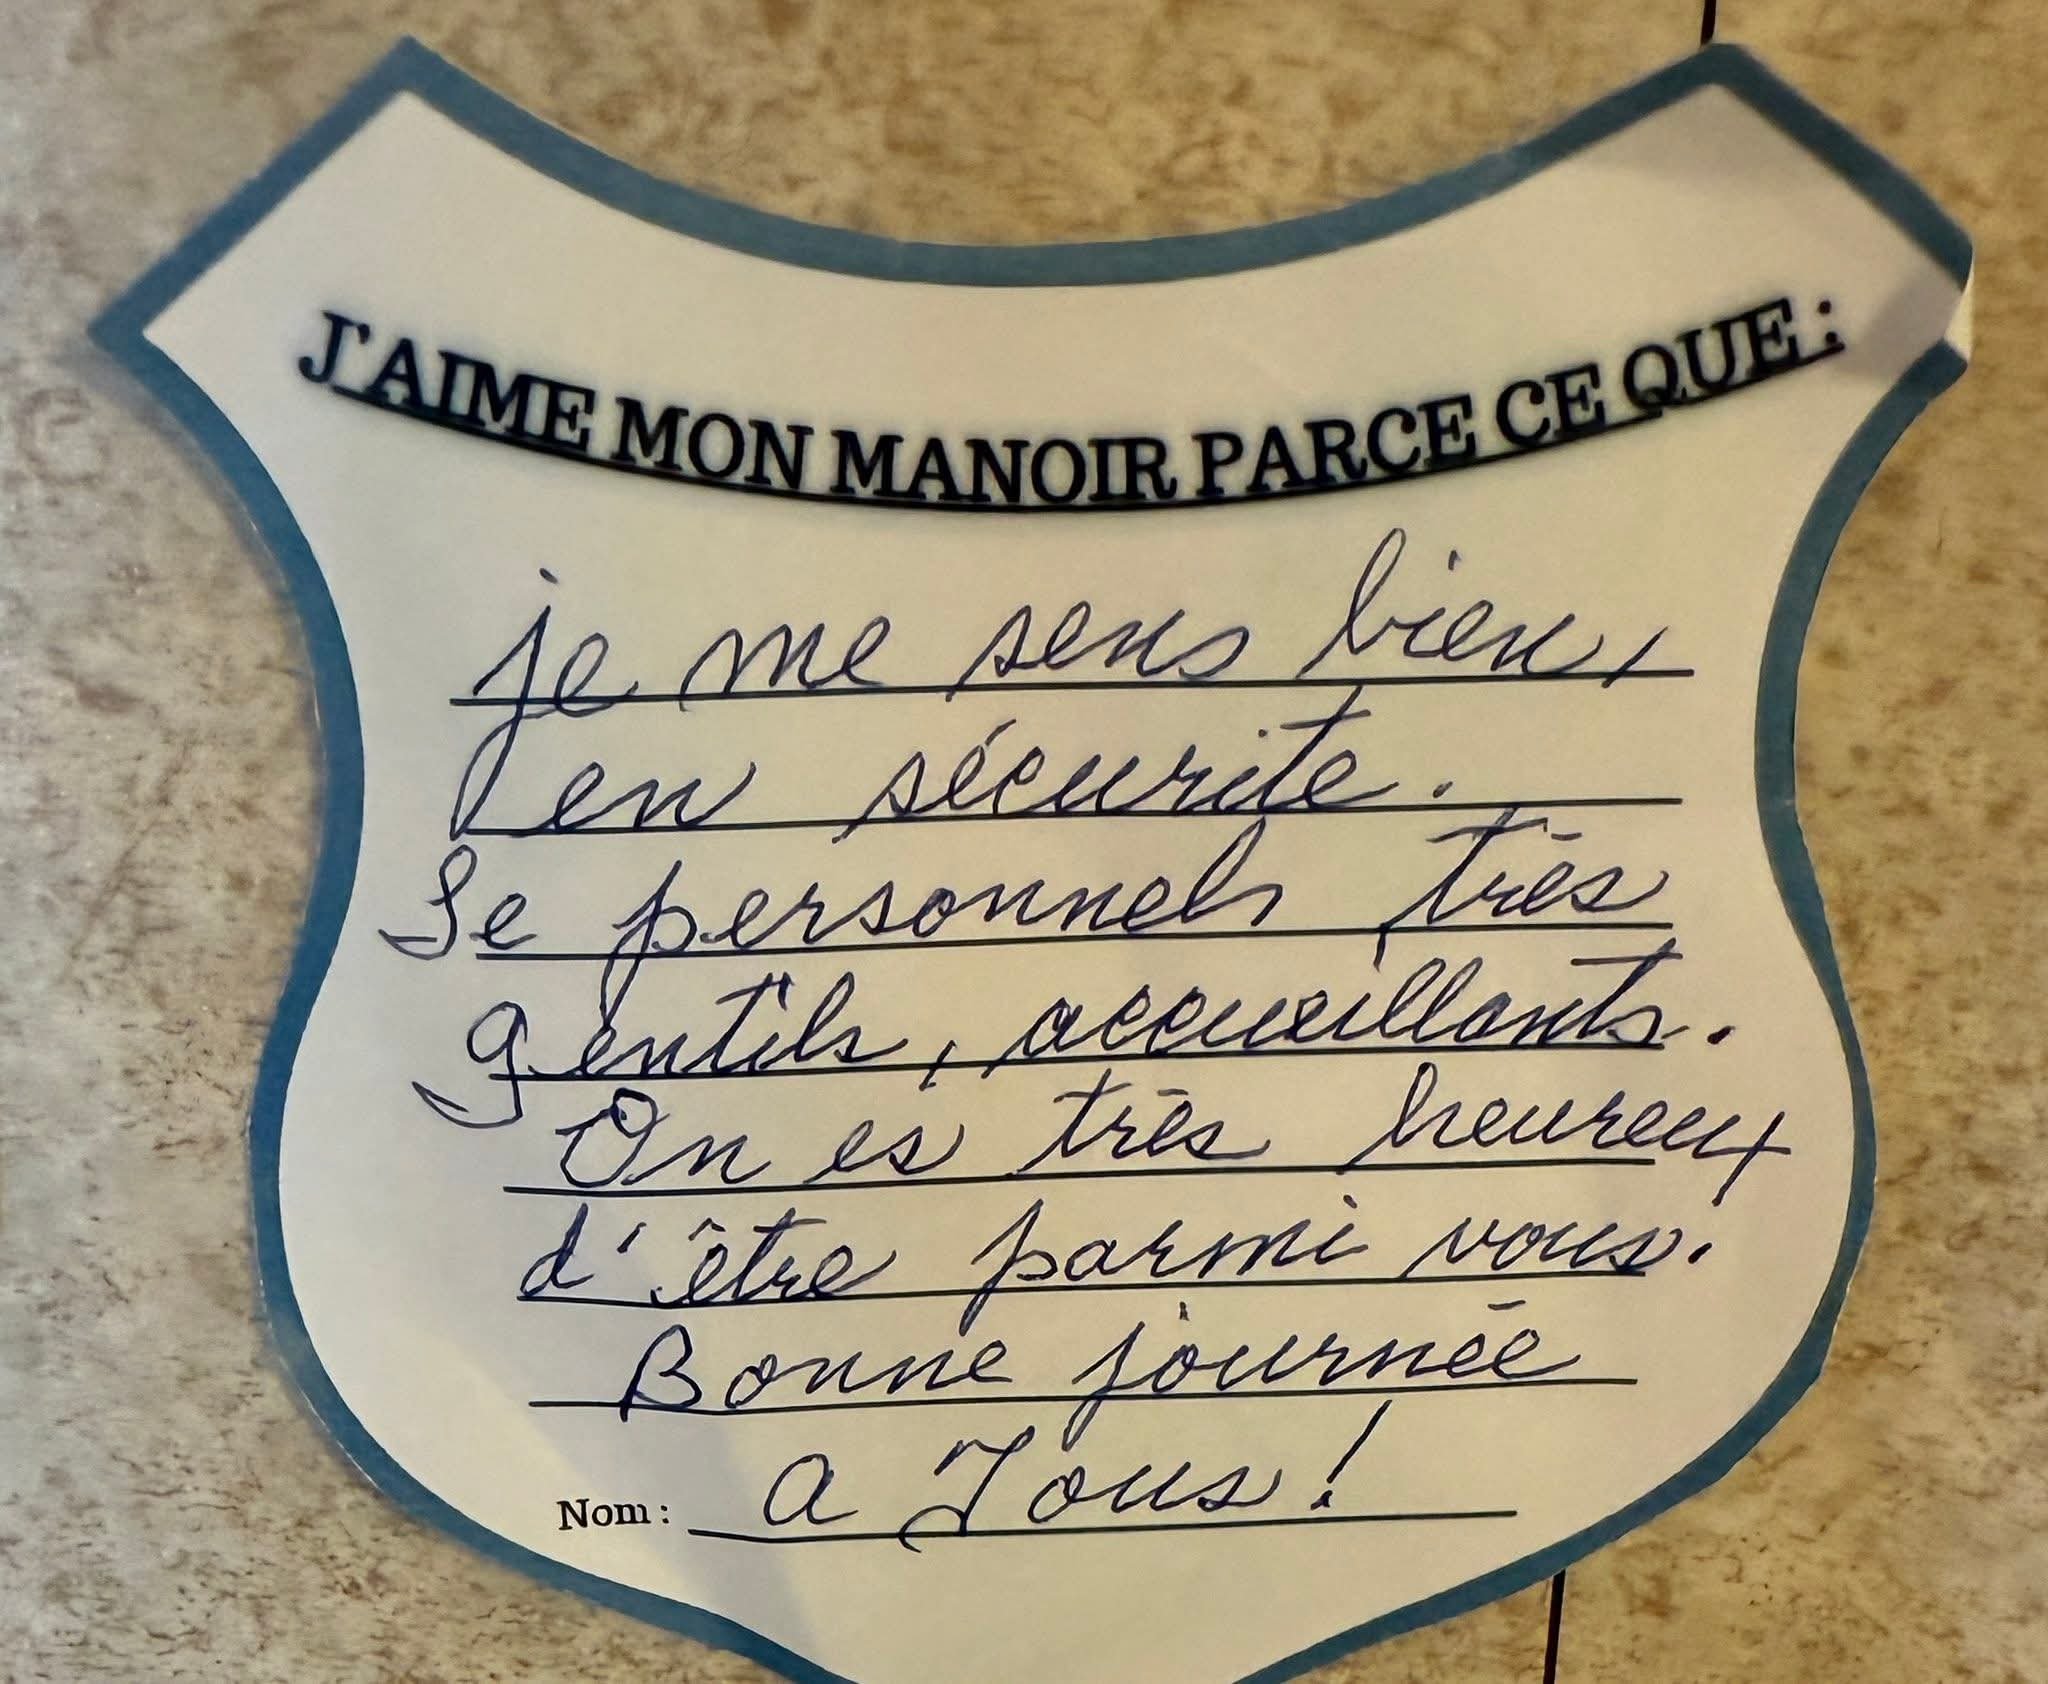 J'AIME MON MANOIR PARCE QUE :
je me sens bien,
en sécurité.
Le personnels très
gentils, accueillants.
On es très heureux
d'être parmi vous.
Bonne journée
Nom : a Tous !